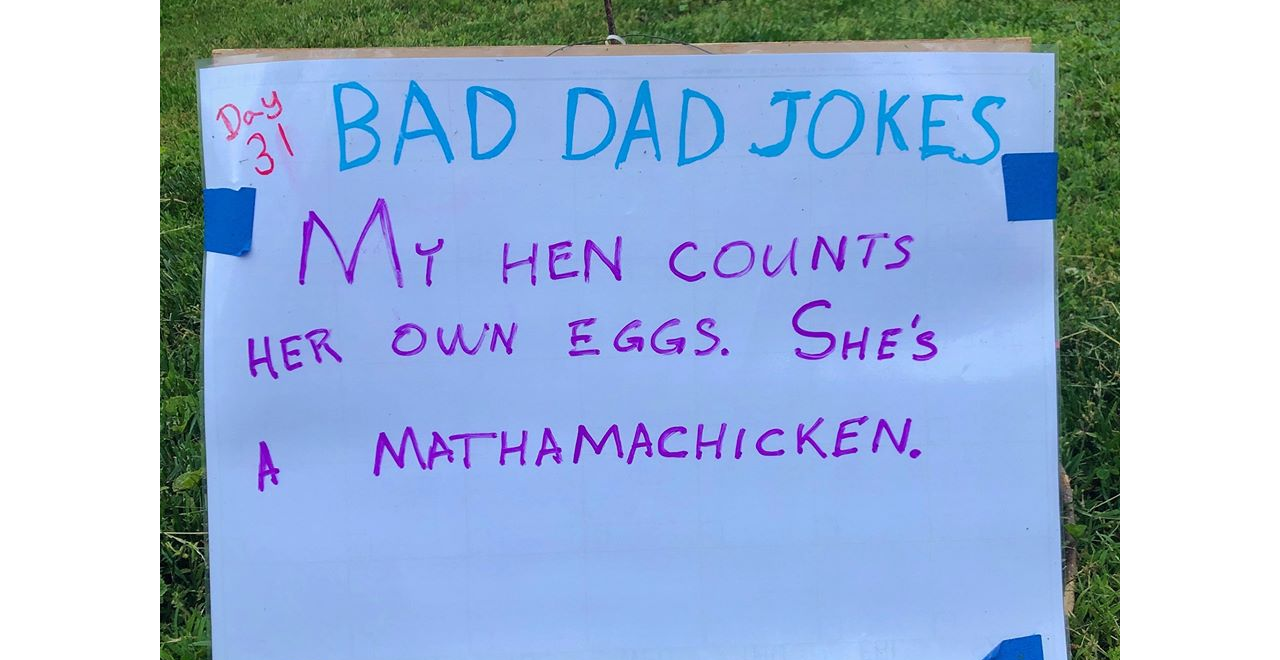 Day
31
BAD DAD JOKES
MY HEN COUNTS
HER OWN EGGS. SHE'S
A MATHAMACHICKEN.